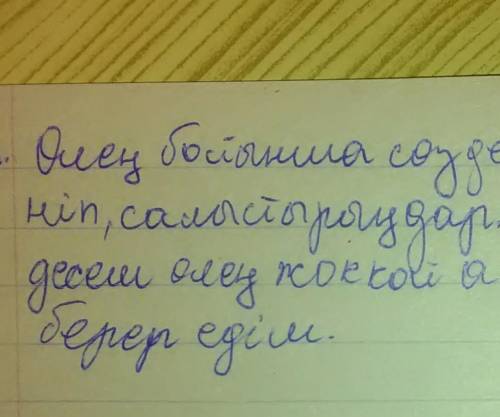 Өлең бойынша сөзде
ніп, салыстырыңдар.
десем өлең жоккой а
берер едім.